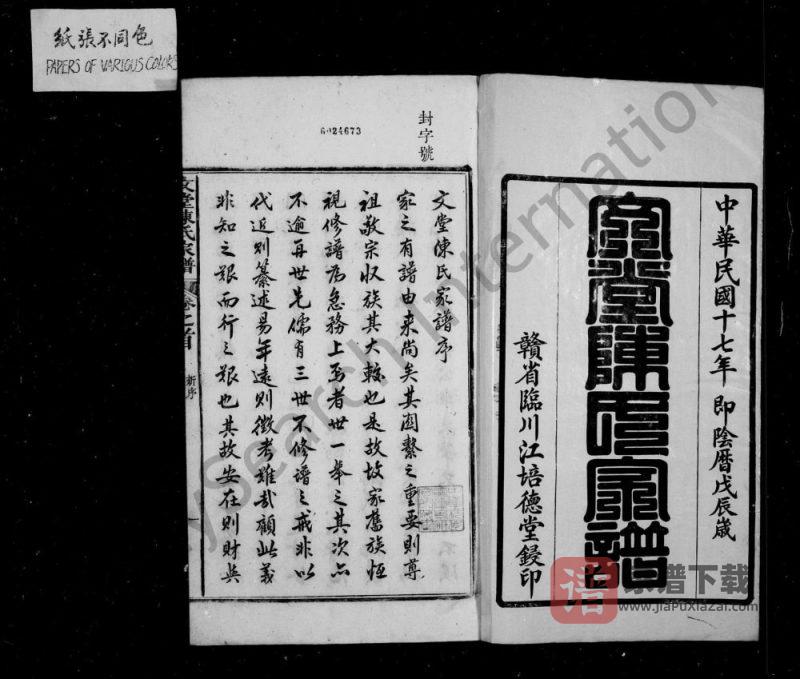 紙張不同色
PAPERS OF VARIOUS COLORS
中華民國十七年 即陰曆戊辰歲
文堂陳氏家譜
贛省臨川江培德堂鋟印
封字號
6024673
文堂陳氏家譜序
家之有譜由來尚矣其関繫之重要則尊
祖敬宗収族其大較也是故故家舊族恒
視修譜為急務上焉者世一舉之其次亦
不逾再世先儒有三世不修譜之戒非以
代近則纂述易年遠則徵考難哉顧此義
非知之艱而行之艱也其故安在則財與
文堂陳氏家譜
卷之首
新序
MySearch International
谱
家谱下载
www.jiaPuxiazai.com